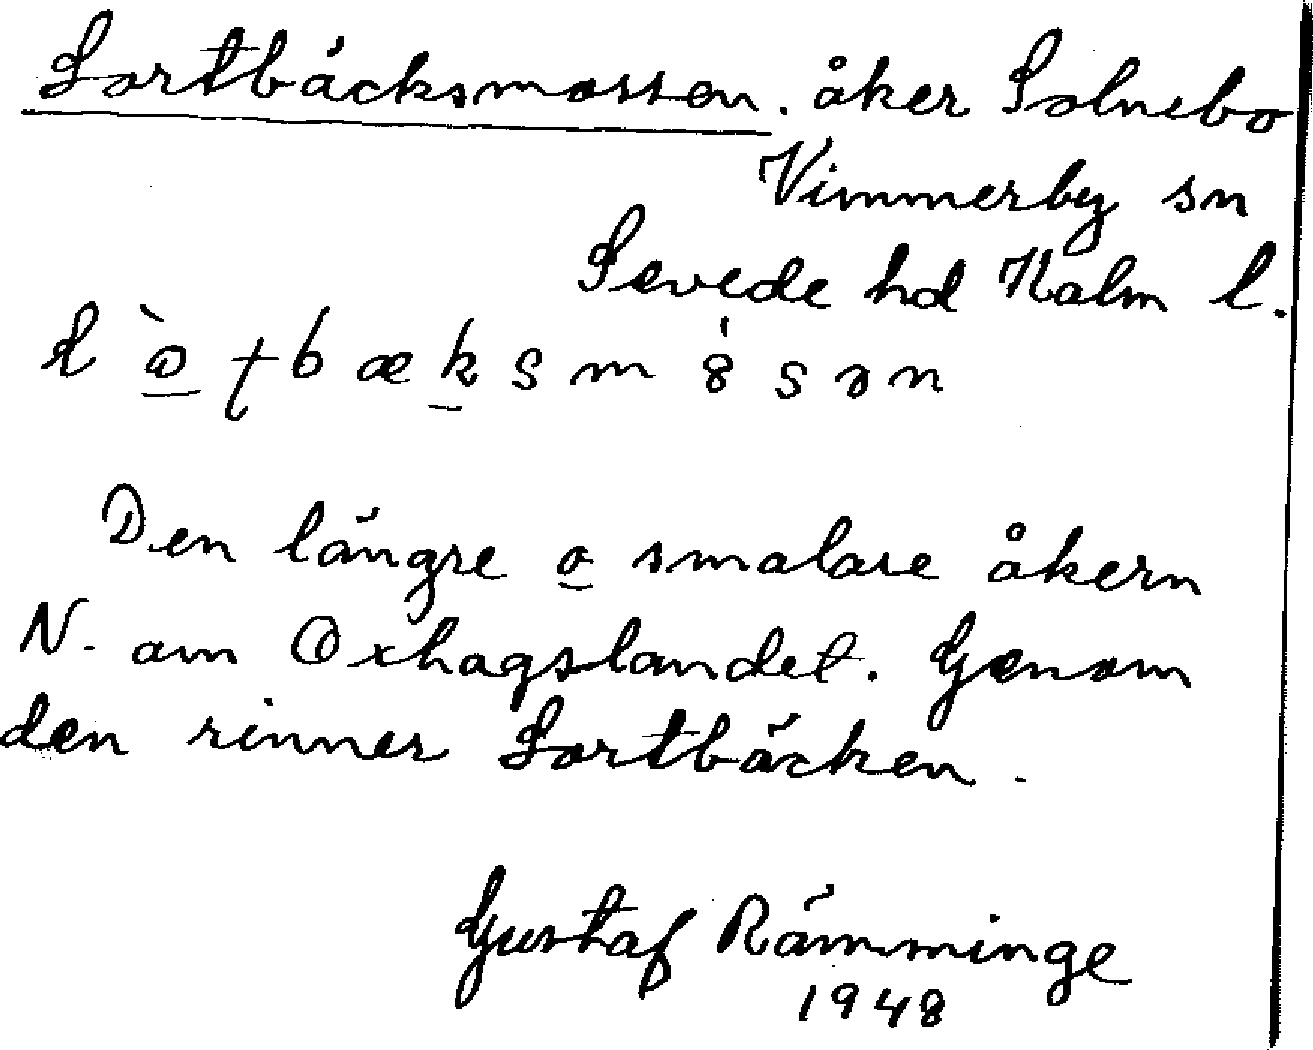 Lortbäcksmossen. åker Solnebo
Vimmerby sn
Sevede hd Kalm l.
l ò̲ ʈ b æ k̲ s m 8́ s ə n
Den längre o̲ smalare åkern
N. om Oxhagslandet. Genom
den rinner Lortbäcken.
Gustaf Rämminge
1948